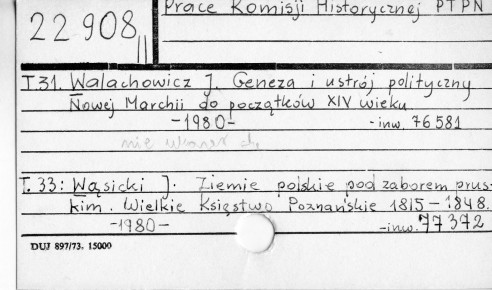 Prace Komisji Historycznej PTPN
22 908 II
T.31. Walachowicz J. Geneza i ustrój polityczny
Nowej Marchii do początków XIV wieku.
-1980- -inw. 76 581
nie
T. 33: Wąsicki J. Ziemie polskie pod zaborem prus-
kim. Wielkie Księstwo Poznańskie 1815-1848.
-1980- -inw. 77 372
DUJ 897/73. 15000